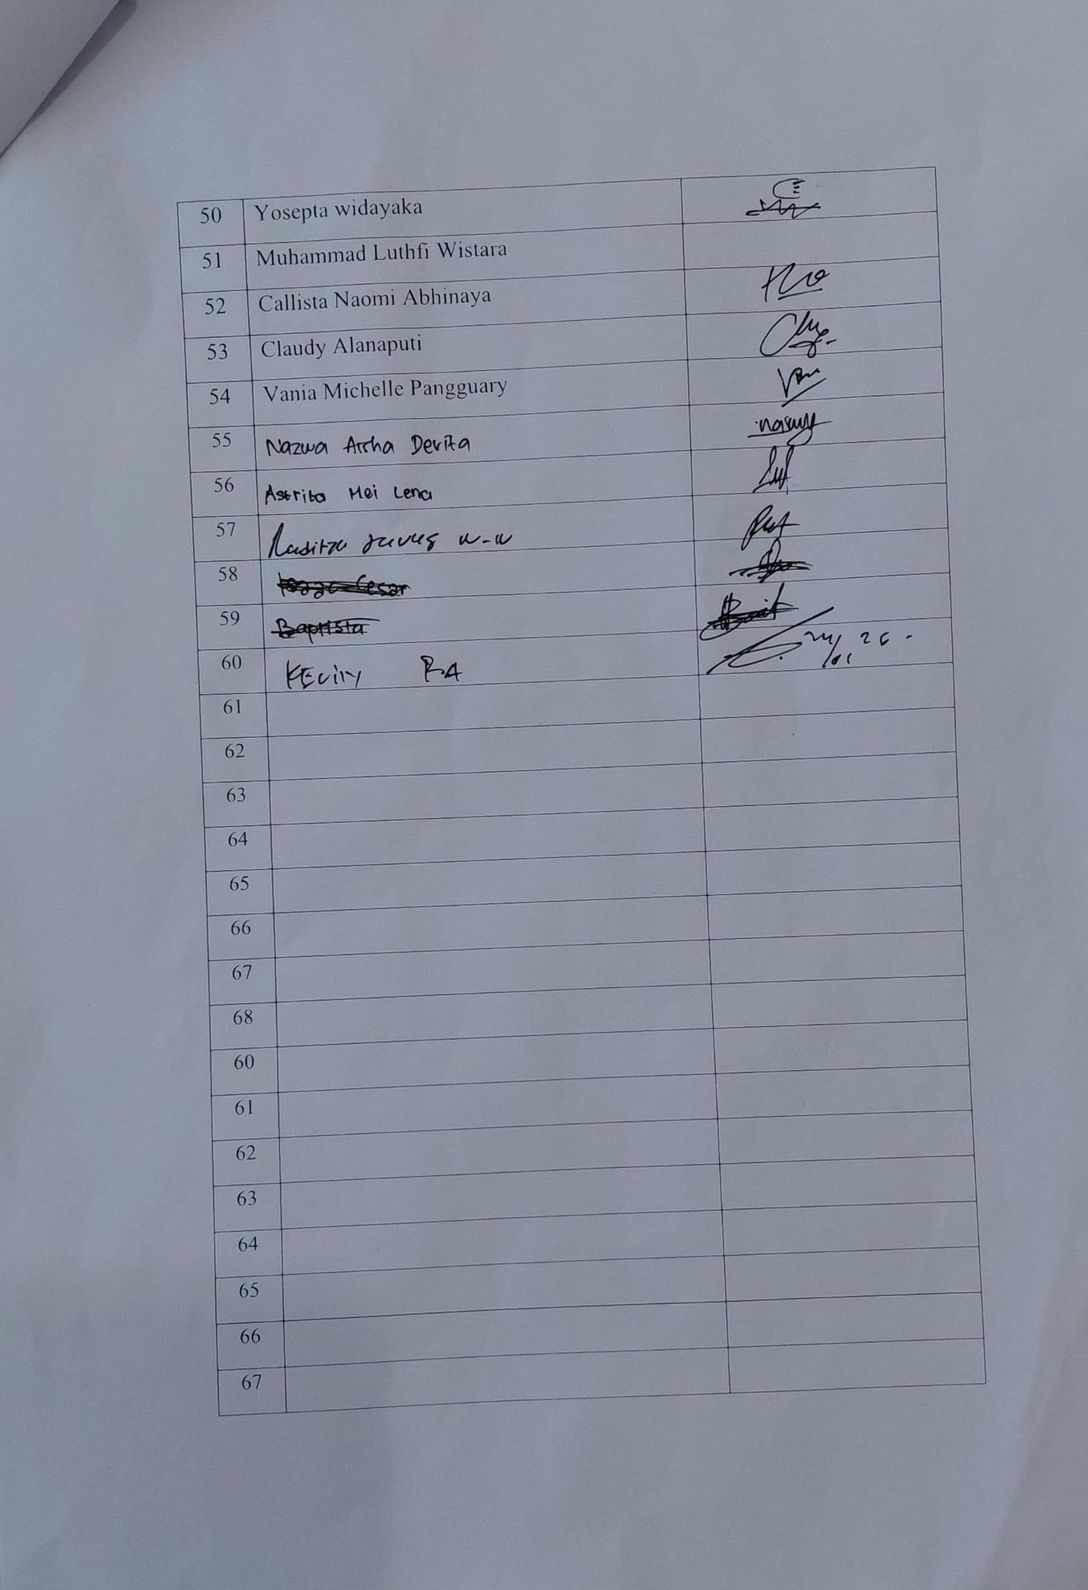 50 Yosepta widayaka
51 Muhammad Luthfi Wistara
52 Callista Naomi Abhinaya
53 Claudy Alanaputi
54 Vania Michelle Pangguary
55 Nazwa Arsha Devita
56 Astrita Mei Lena
57
58 Cesar
59 Baptista
60 R.A 24/01 26.
61
62
63
64
65
66
67
68
60
61
62
63
64
65
66
67